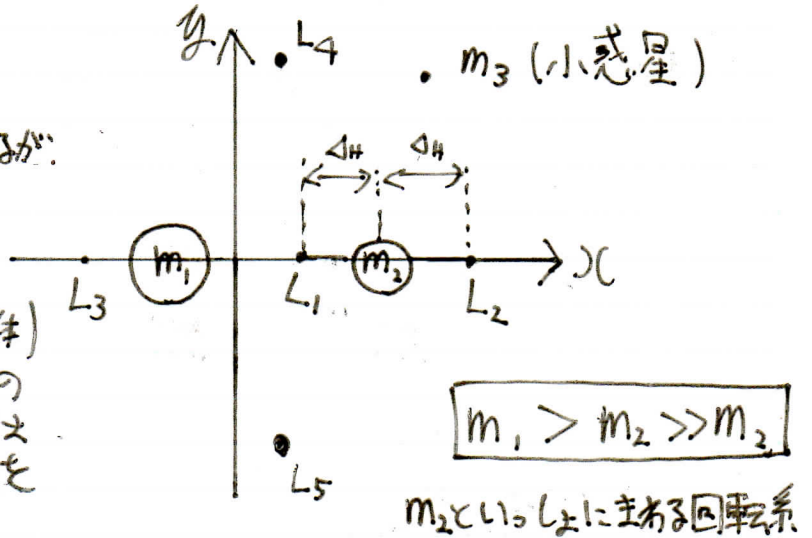 y
L4
m3 (小惑星)
るが、
ΔH ΔH
m1 m2 x
L3 L1 L2
体)
の
え
を
m1 > m2 >> m2
L5
m2といっしょにまわる回転系